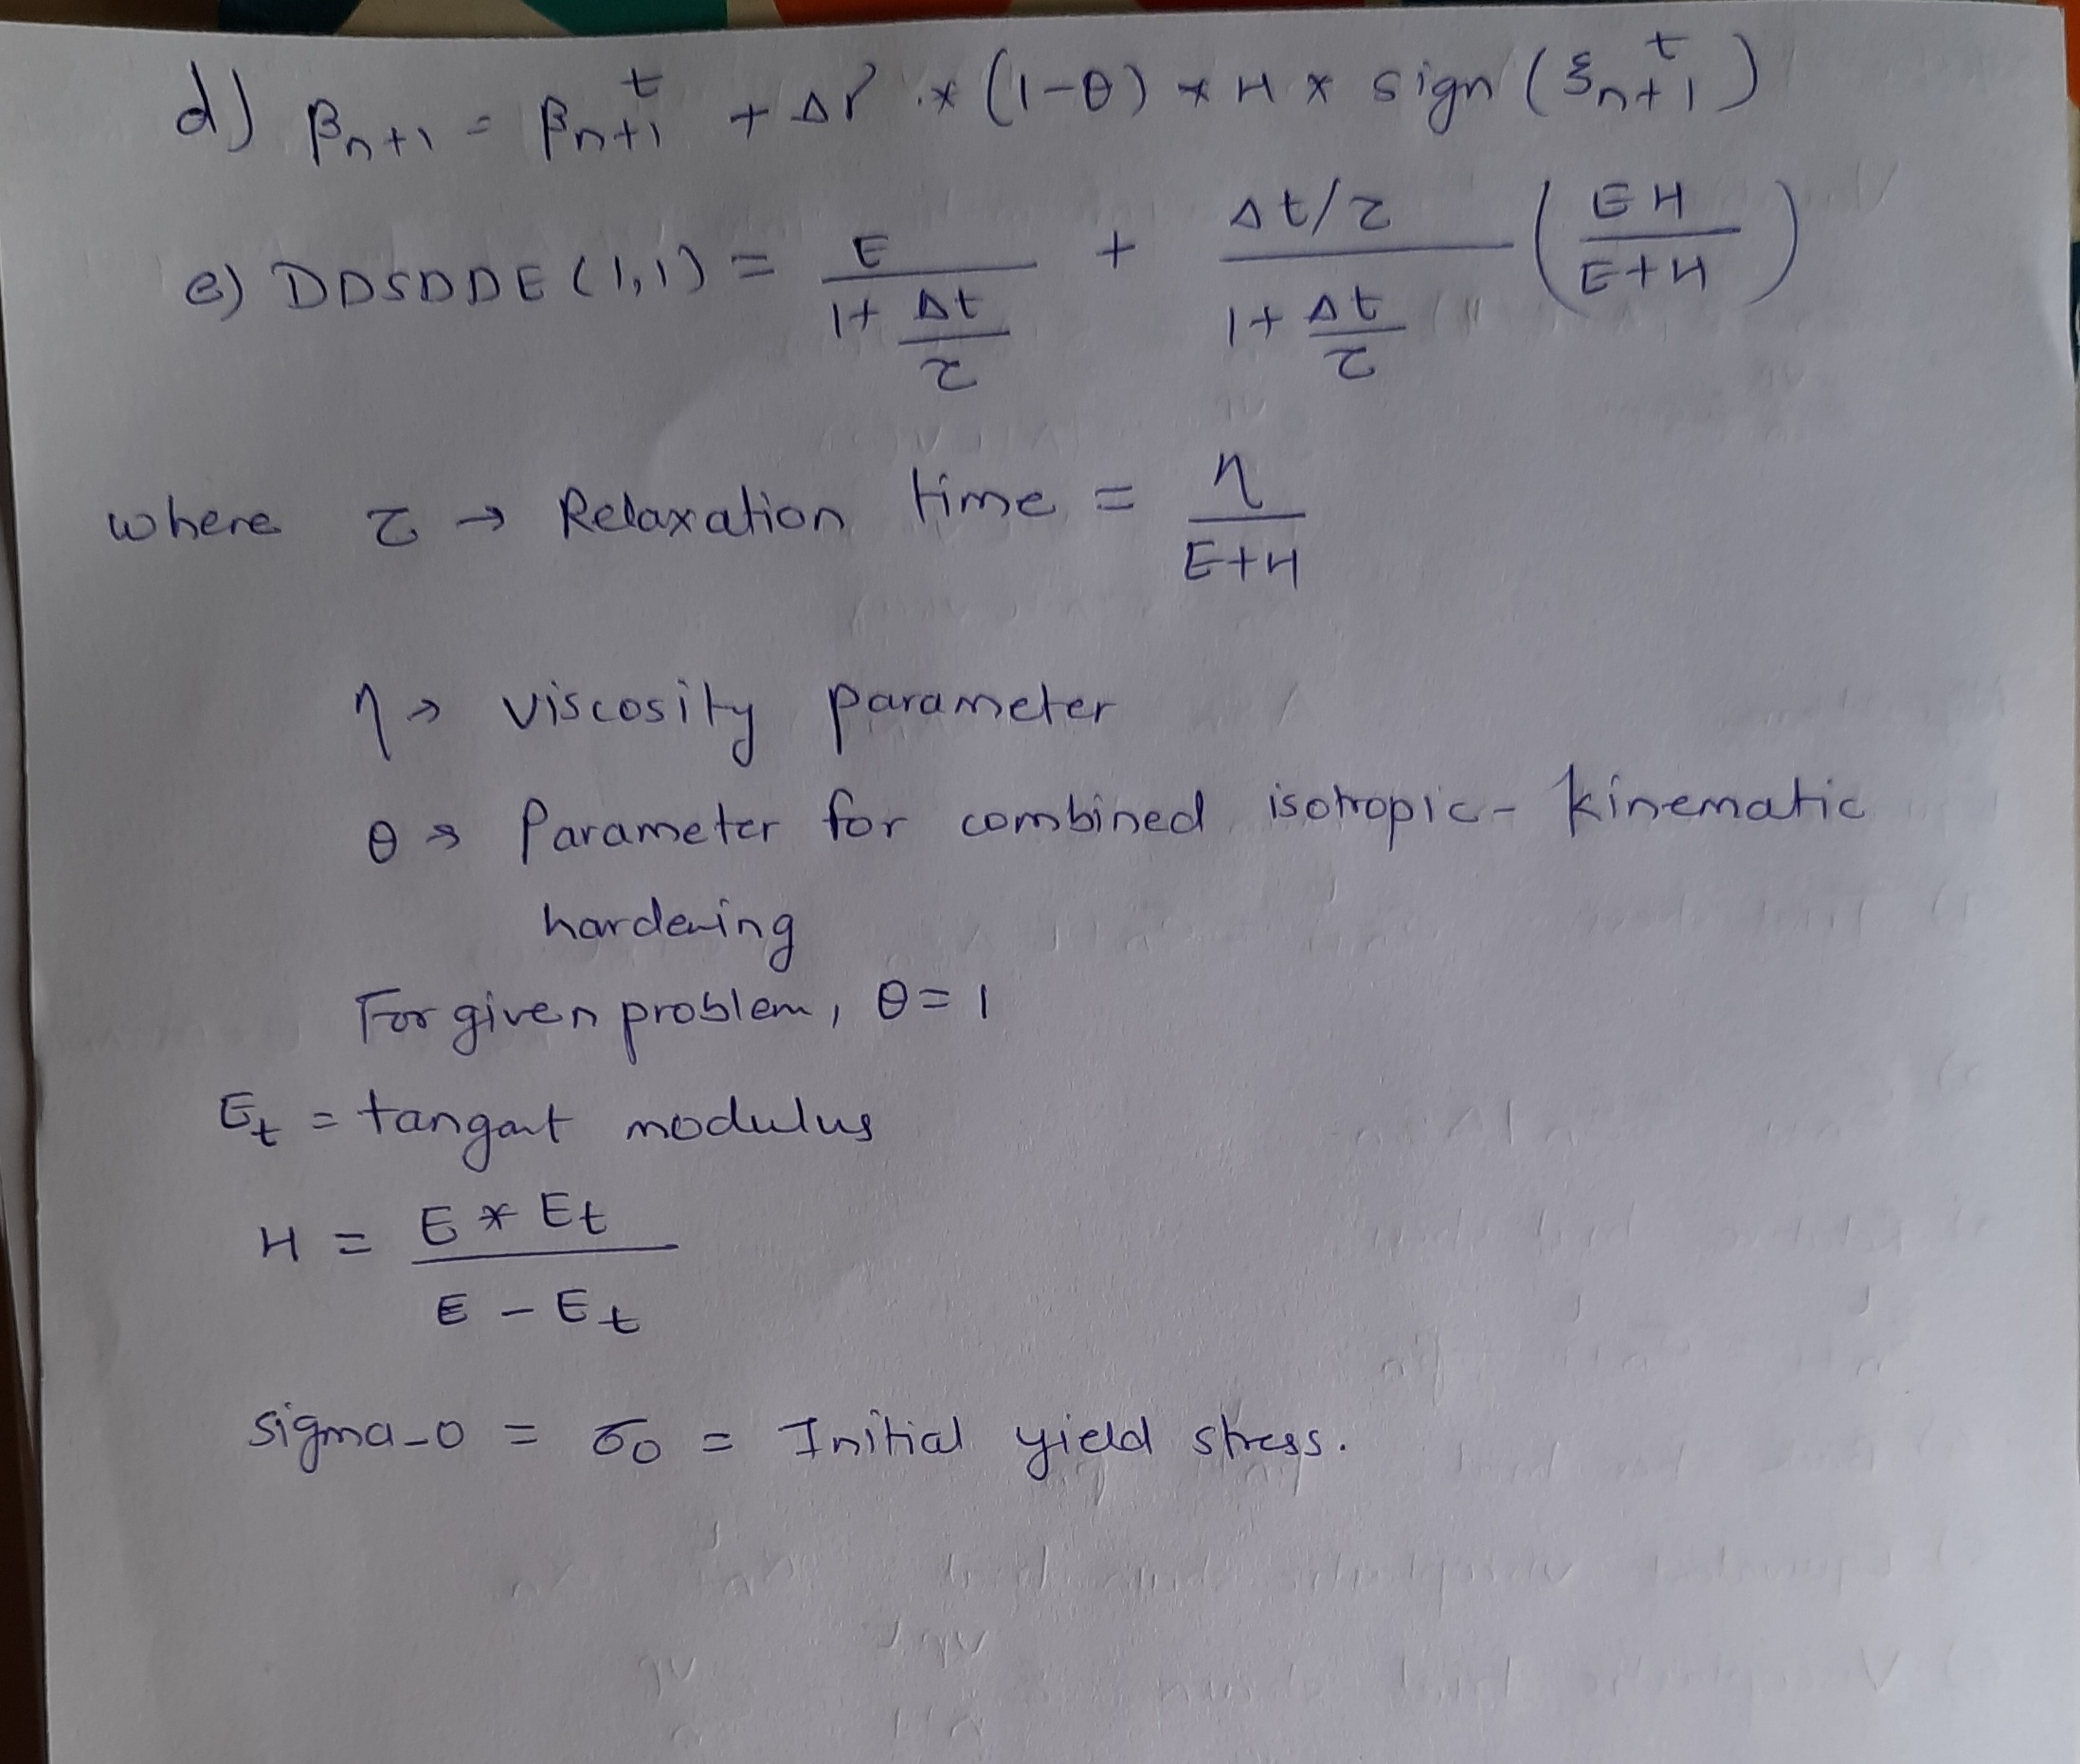 d) βn+1 = βn+1^t + Δγ * (1-θ) * H * sign (ξn+1^t)
e) DDSDDE (1,1) = E / (1 + Δt/τ) + (Δt/τ) / (1 + Δt/τ) (EH / (E+H))
where τ → Relaxation time = η / (E+H)
η → viscosity parameter
θ → Parameter for combined isotropic - kinematic
hardening
For given problem, θ = 1
Et = tangent modulus
H = E * Et / (E - Et)
sigma_0 = σ0 = Initial yield stress.